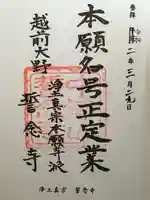 参拝 令和二年三月二九日
本願名号正定業
浄土真宗本願寺派
越前大野
誓念寺
浄土真宗 誓念寺